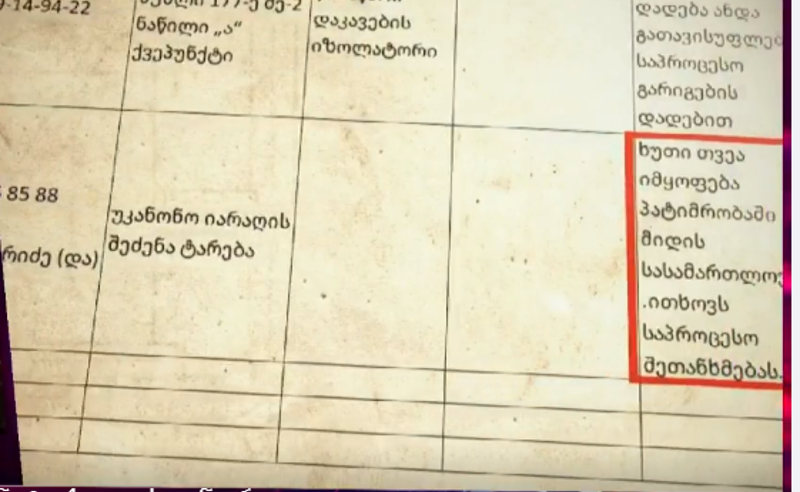 9-14-94-22
177-ე
ნაწილი „ა“
ქვეპუნქტი
დაკავების
იზოლატორი
დადება ანდა
საპროცესო
გარიგების
დადებით
85 88
(და)
უკანონო იარაღის
შეძენა ტარება
ხუთი თვეა
იმყოფება
პატიმრობაში
მიდის
.ითხოვს
საპროცესო
შეთანხმებას.